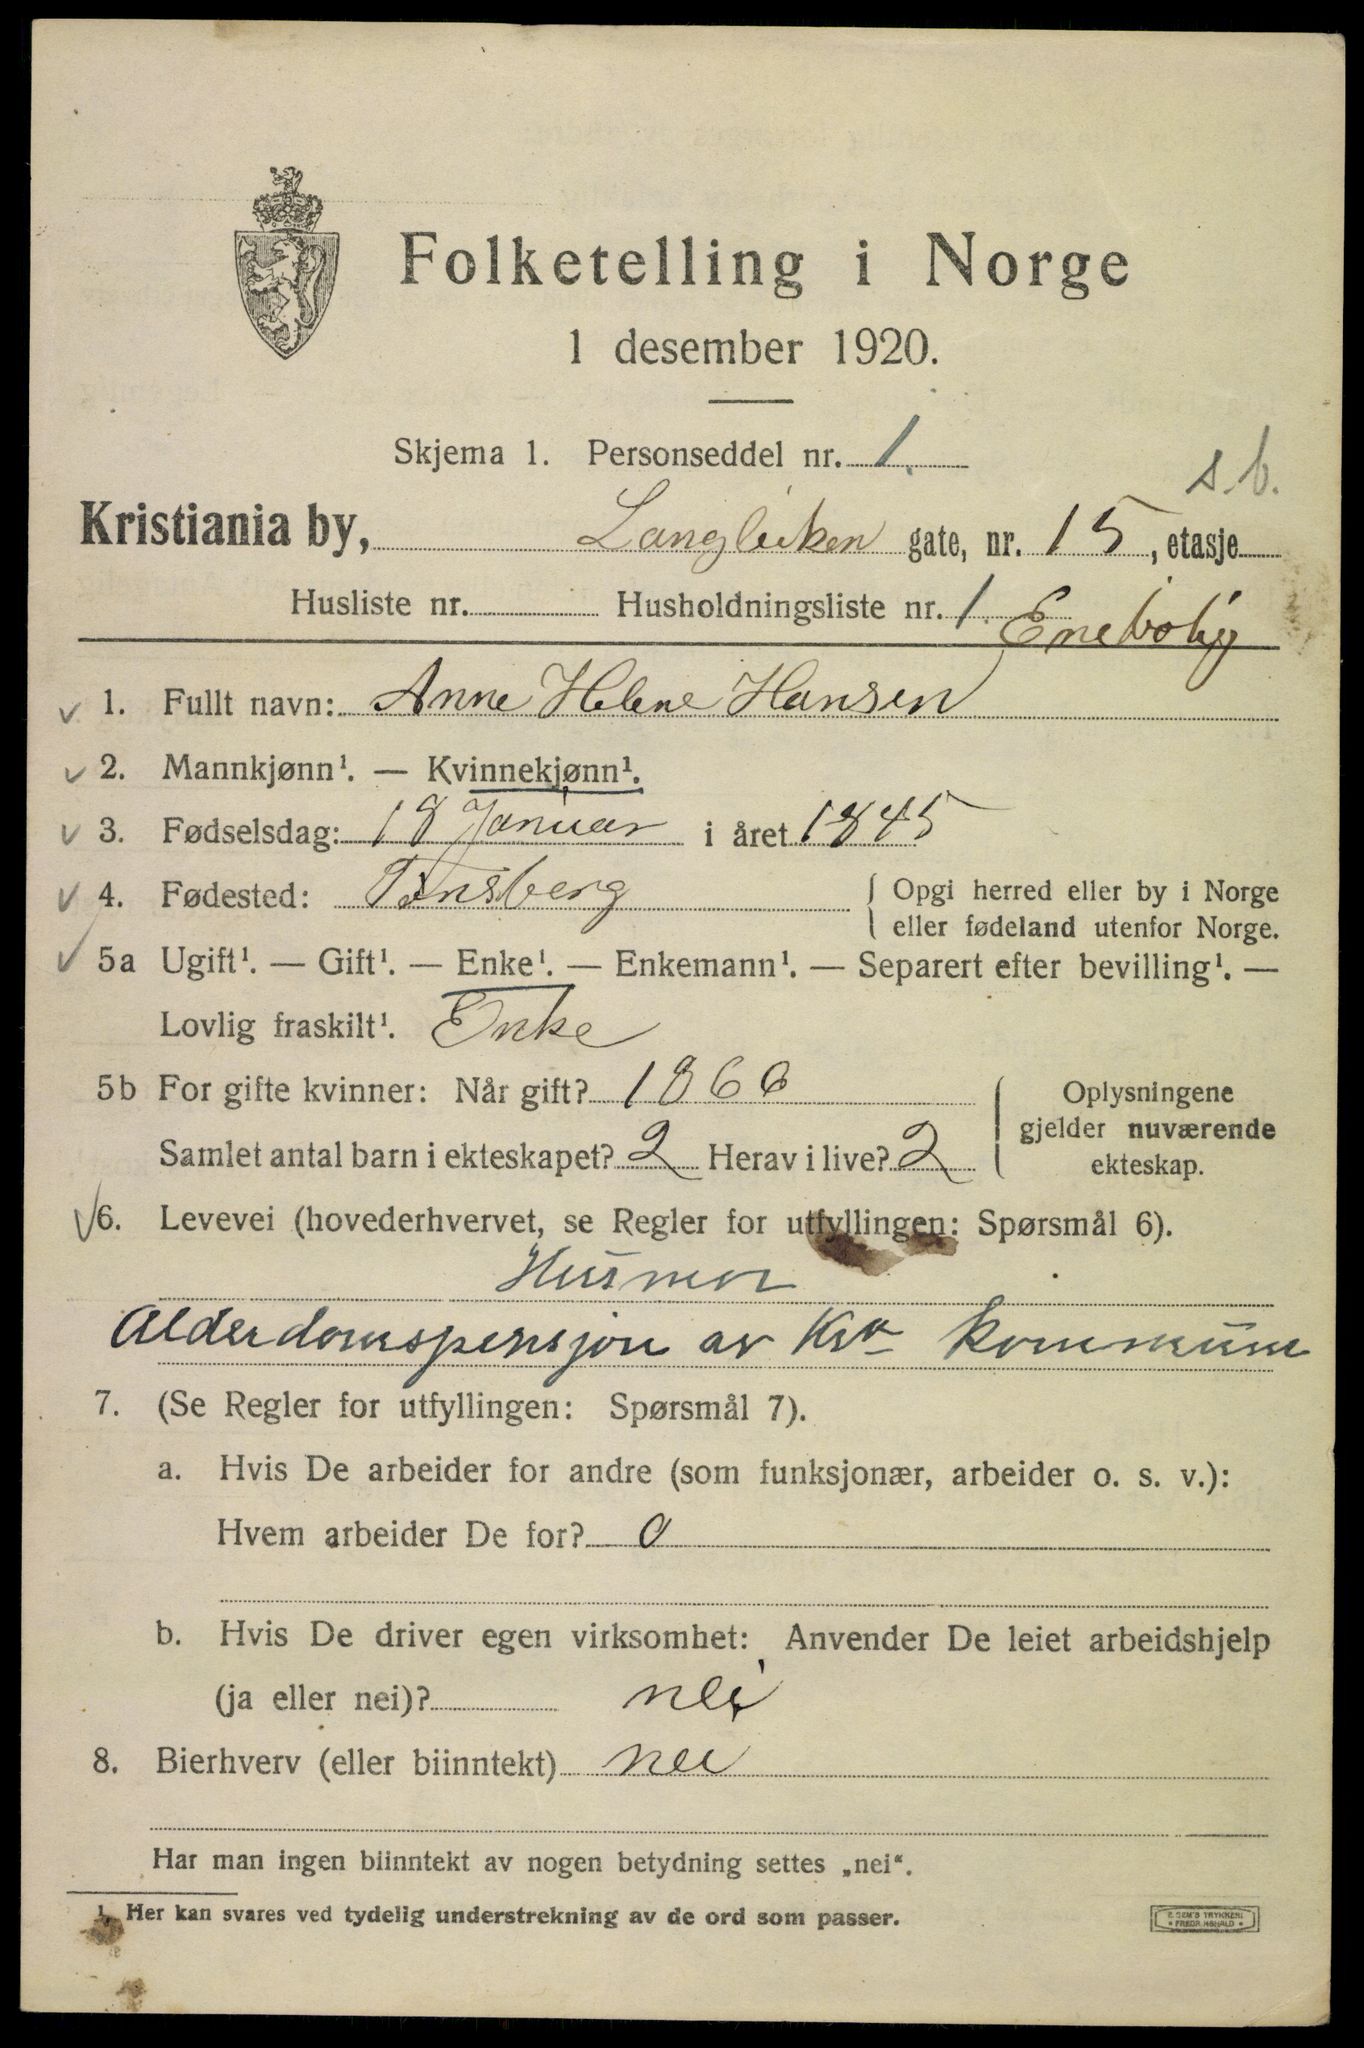 Folketelling i Norge
1 desember 1920.
Skjema 1. Personseddel nr. 1.
s.b.
Kristiania by, Langleiken gate, nr. 15, etasje
Husliste nr. Husholdningsliste nr. 1.
Enebolig
1. Fullt navn: Anne Helene Hansen
2. Mannkjønn¹. — Kvinnekjønn¹.
3. Fødselsdag: 18 Januar i året 1845
4. Fødested: Tønsberg
Opgi herred eller by i Norge
eller fødeland utenfor Norge.
5a Ugift¹. — Gift¹. — Enke¹. — Enkemann¹. — Separert efter bevilling¹. —
Lovlig fraskilt¹. Enke
5b For gifte kvinner: Når gift? 1866
Samlet antal barn i ekteskapet? 2 Herav i live? 2
Oplysningene
gjelder nuværende
ekteskap.
6. Levevei (hovederhvervet, se Regler for utfyllingen: Spørsmål 6).
Husmor
Alderdomspensjon av Kra kommune
7. (Se Regler for utfyllingen: Spørsmål 7).
a. Hvis De arbeider for andre (som funksjonær, arbeider o. s. v.):
Hvem arbeider De for? 0
b. Hvis De driver egen virksomhet: Anvender De leiet arbeidshjelp
(ja eller nei)? nei
8. Bierhverv (eller biinntekt) nei
Har man ingen biinntekt av nogen betydning settes „nei“.
¹. Her kan svares ved tydelig understrekning av de ord som passer.
E. SEM'S TRYKKERI
FREDR.HSHALD